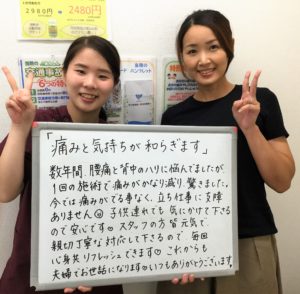 2980円
2480円
交通事故
6つの特
パンフレット
「痛みと気持ちが和らぎます」
数年間、腰痛と背中のハリに悩んでましたが、
1回の施術で痛みがかなり減り、驚きました。
今では痛みがでる事なく、立ち仕事に支障
ありません☺ 子供連れでも気にかけて下さる
ので安心です☺ スタッフの方皆元気で、
親切丁寧な対応して下さるので、毎回
心身共リフレッシュできます☺ これからも
夫婦でお世話になります☺いつもありがとうございます。